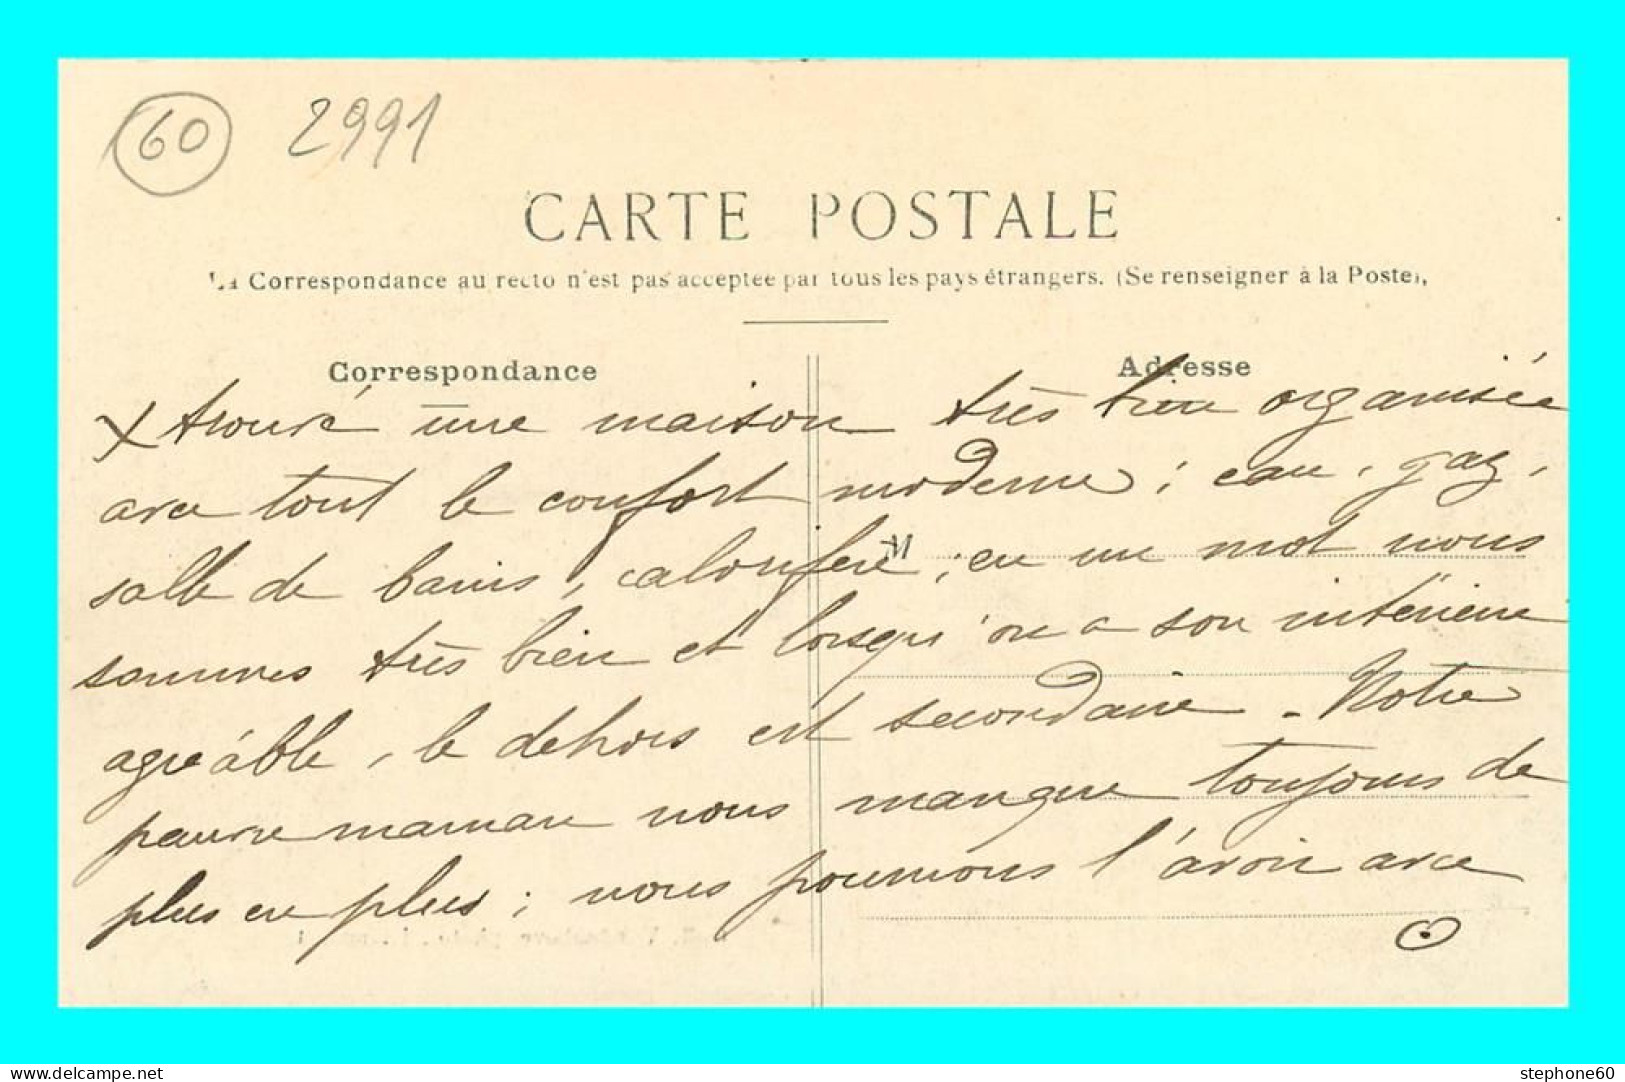 60 2991
CARTE POSTALE
La Correspondance au recto n'est pas acceptée par tous les pays étrangers. (Se renseigner à la Poste),
Correspondance Adresse
X trouvé une maison très bien organisée
avec tout le confort moderne ; eau, gaz,
M
salle de bains, calorifère ; en un mot nous
sommes très bien et lorsqu'on a son intérieur
agréable, le dehors est secondaire - Notre
pauvre maman nous manque toujours de
plus en plus ; nous pourrions l'avoir avec
delcampe.net
stephone60